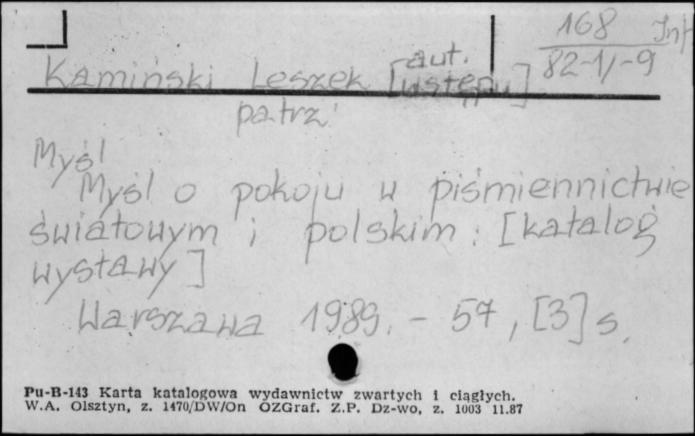 168 Inf
82-1/-9
Kamiński Leszek [aut.
wstępu]
patrz
Myśl
Myśl o pokoju w piśmiennictwie
światowym i polskim : [katalog
wystawy]
Warszawa 1989. - 57, [3] s.
Pu-B-143 Karta katalogowa wydawnictw zwartych i ciągłych.
W.A. Olsztyn, z. 1470/DW/On OZGraf. Z.P. Dz-wo, z. 1003 11.87